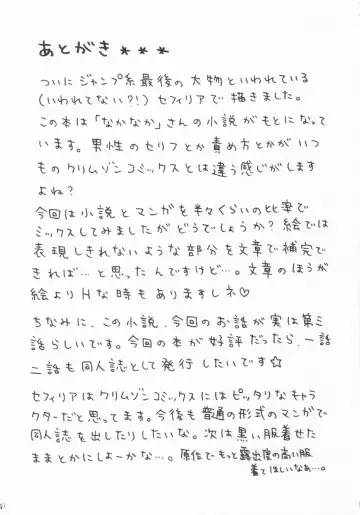 あとがき＊＊＊
ついにジャンプ系最後の大物といわれている
(いわれてない?!)セフィリアで描きました。
この本は「なかなか」さんの小説がもとになって
います。男性のセリフとか責め方とかがいつ
ものクリムゾンコミックスとは違う感じがします
よね?
今回は小説とマンガを半々くらいの比率で
ミックスしてみましたがどうでしょうか?絵では
表現しきれないような部分を文章で補完で
きれば…と思ったんですけど…。文章のほうが
絵よりHな時もありますしネ♡
ちなみに、この小説、今回のお話が実は第三
話らしいです。今回の本が好評だったら、一話
二話も同人誌として発行したいです☆
セフィリアはクリムゾンコミックスにはピッタリなキャラ
クターだと思ってます。今後も普通の形式のマンガで
同人誌を出したりしたいな。次は黒い服着せた
ままとかにしよーかな…。原作でもっと露出度の高い服
着てほしいなぁ…。